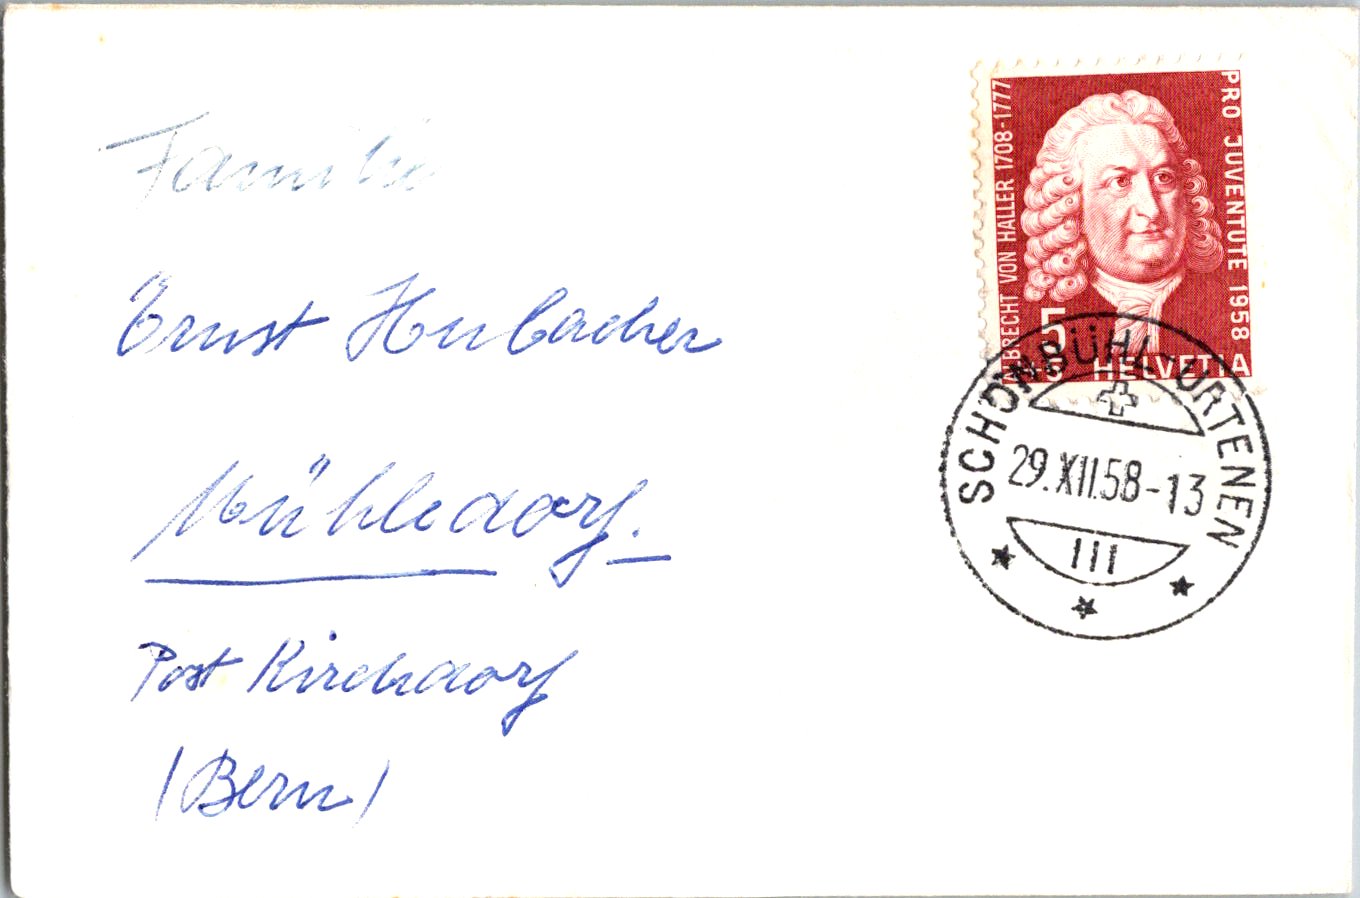 Familie
Ernst Hubacher
Mühledorf.
Post Kirchdorf
(Bern)
ALBRECHT VON HALLER 1708-1777
PRO JUVENTUTE 1958
5
5
HELVETIA
SCHÖNBÜHL-URTENEN
29.XII.58-13
III